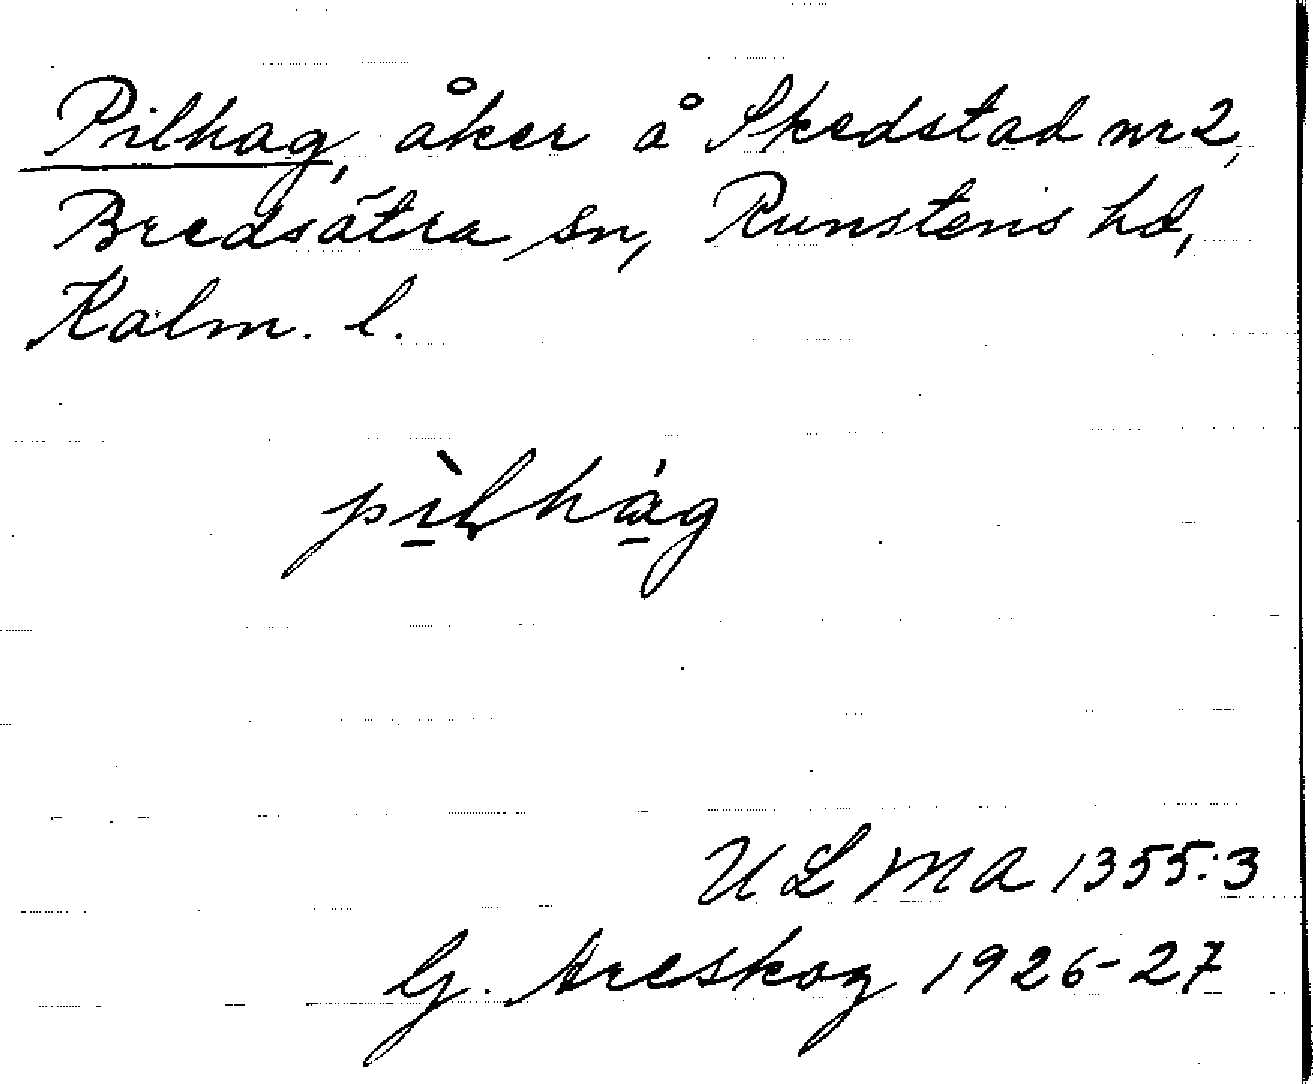 Pilhag, åker å Skedstad nr 2,
Bredsätra sn, Runstens hd,
Kalm. l.
pìlhág
ULMA 1355:3
G. Areskog 1926-27